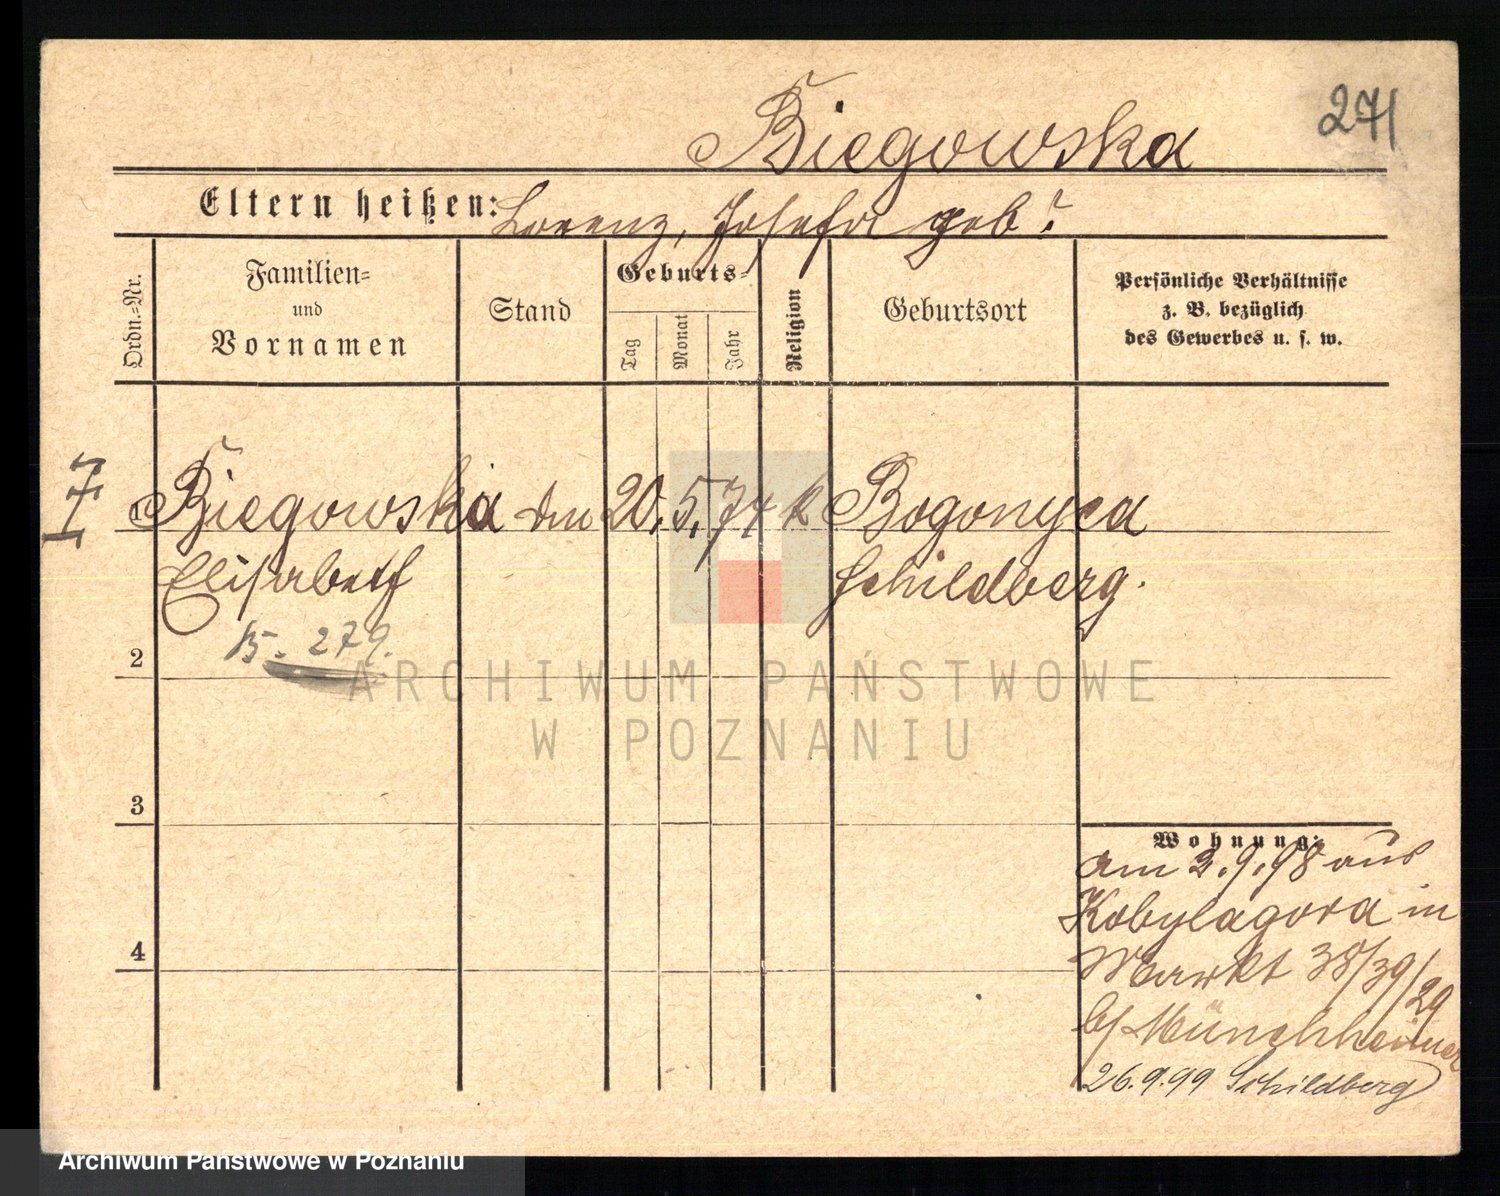 271
Biegowska
Eltern heißen: Lorenz, Josefa geb?
Ordn.=Nr.
Familien=
und
Vornamen
Stand
Geburts=
Tag
Monat
Jahr
Religion
Geburtsort
Persönliche Verhältnisse
z. B. bezüglich
des Gewerbes u. s. w.
1 Biegowska 20. 5. 74 k Bogonyca
Elisabeth Schildberg.
B. 279.
2
3
4
Wohnung:
am 2.9.98 aus
Kobylagora in
Markt 38/39/29
b/ Münchheimer
26.9.99 Schildberg
ARCHIWUM PAŃSTWOWE
W POZNANIU
Archiwum Państwowe w Poznaniu